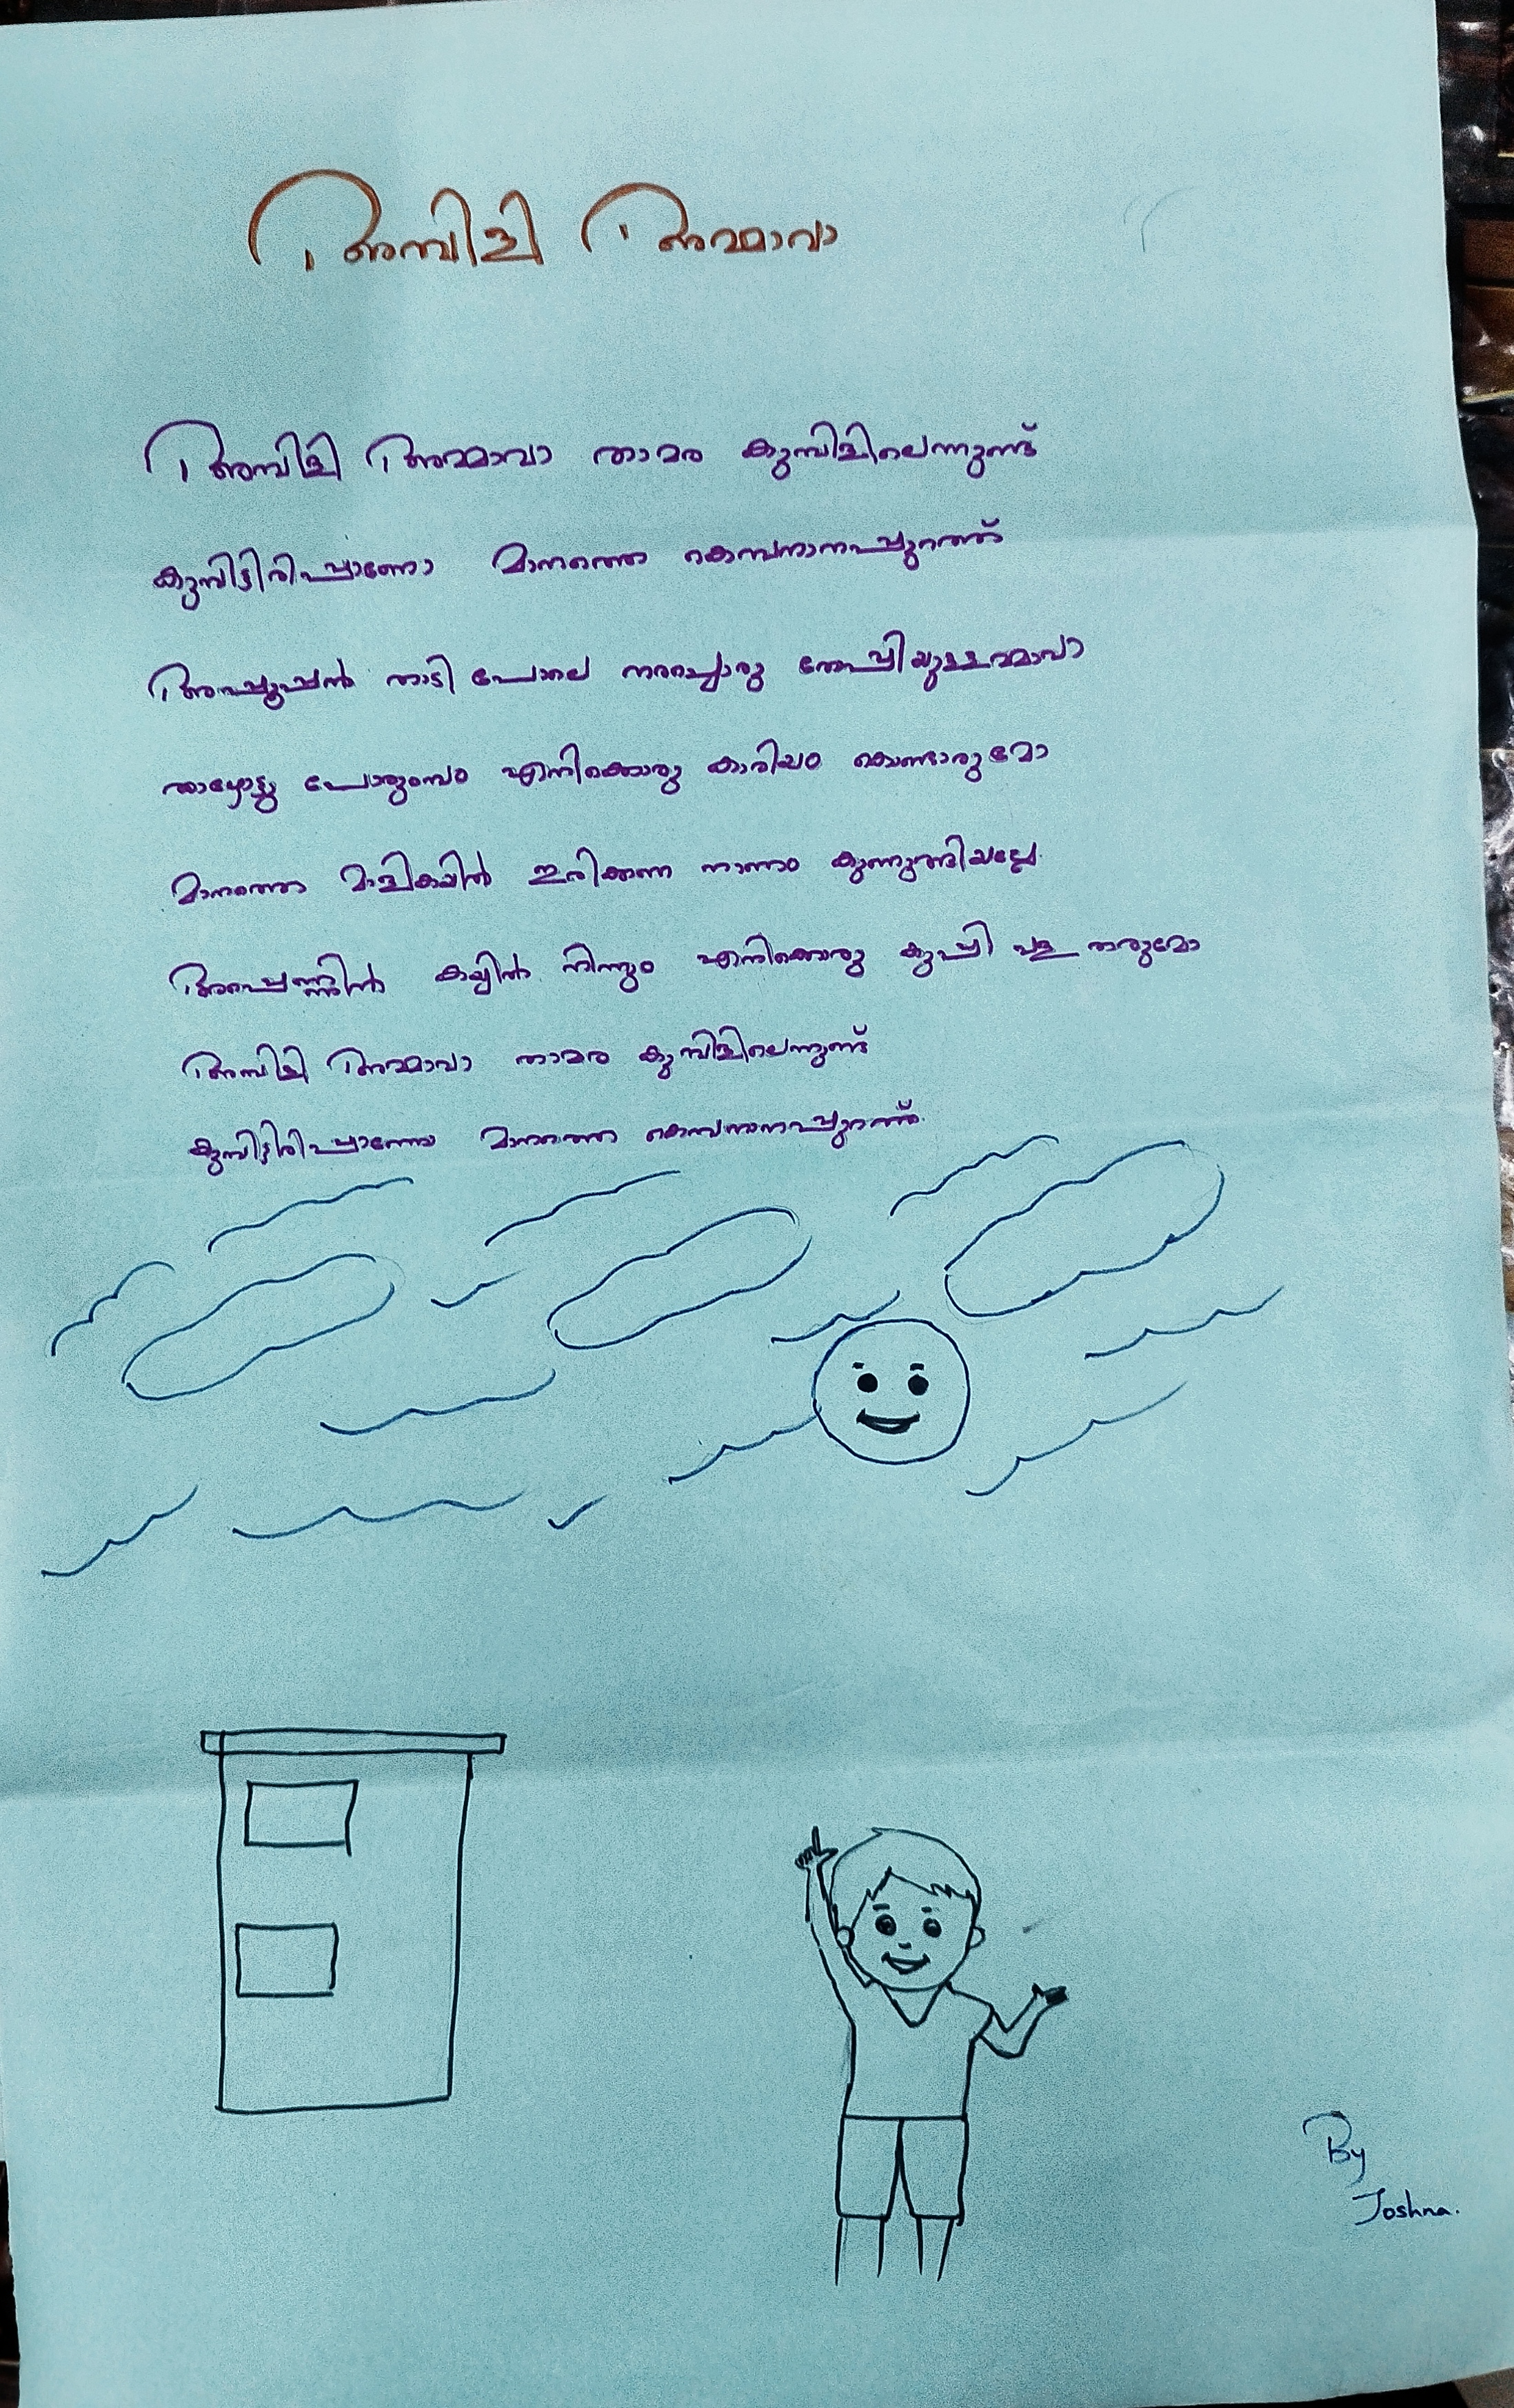 അമ്പിളി അമ്മാവാ
അമ്പിളി അമ്മാവാ താമര കുമ്പിളിലെന്നുണ്ട്
കുമ്പിട്ടിരിപ്പാണോ മാനത്തെ കൊമ്പനാനപ്പുറത്ത്
അപ്പൂപ്പൻ താടി പോലെ നരച്ചൊരു തൊപ്പിയുള്ളമ്മാവാ
താഴോട്ടു പോരുംമ്പം എനിക്കൊരു കാരിയം കൊണ്ടാരുമോ
മാനത്തൊ മാളികയിൽ ഇരിക്കണ നാണം കുണുങ്ങിയല്ലേ
അപെണ്ണിൻ കയ്യിൽ നിന്നും എനിക്കൊരു കുപ്പി വള തരുമോ
അമ്പിളി അമ്മാവാ താമര കുമ്പിളിലെന്നുണ്ട്
കുമ്പിട്ടിരിപ്പാണോ മാനത്തെ കൊമ്പനാനപ്പുറത്ത്.
By
Joshna.